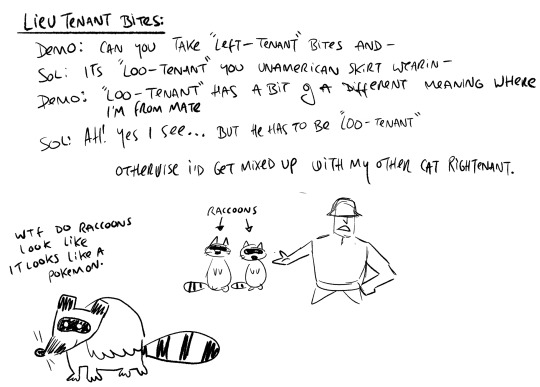 LIEUTENANT BITES:
DEMO: CAN YOU TAKE "LEFT-TENANT" BITES AND-
SOL: ITS "LOO-TENANT" YOU UNAMERICAN SKIRT WEARIN-
DEMO: "LOO-TENANT" HAS A BIT OF A DIFFERENT MEANING WHERE
I'M FROM MATE
SOL: AH! YES I SEE... BUT HE HAS TO BE "LOO-TENANT"
OTHERWISE I'D GET MIXED UP WITH MY OTHER CAT RIGHTENANT.
RACCOONS
WTF DO RACCOONS
LOOK LIKE
IT LOOKS LIKE A
POKEMON.